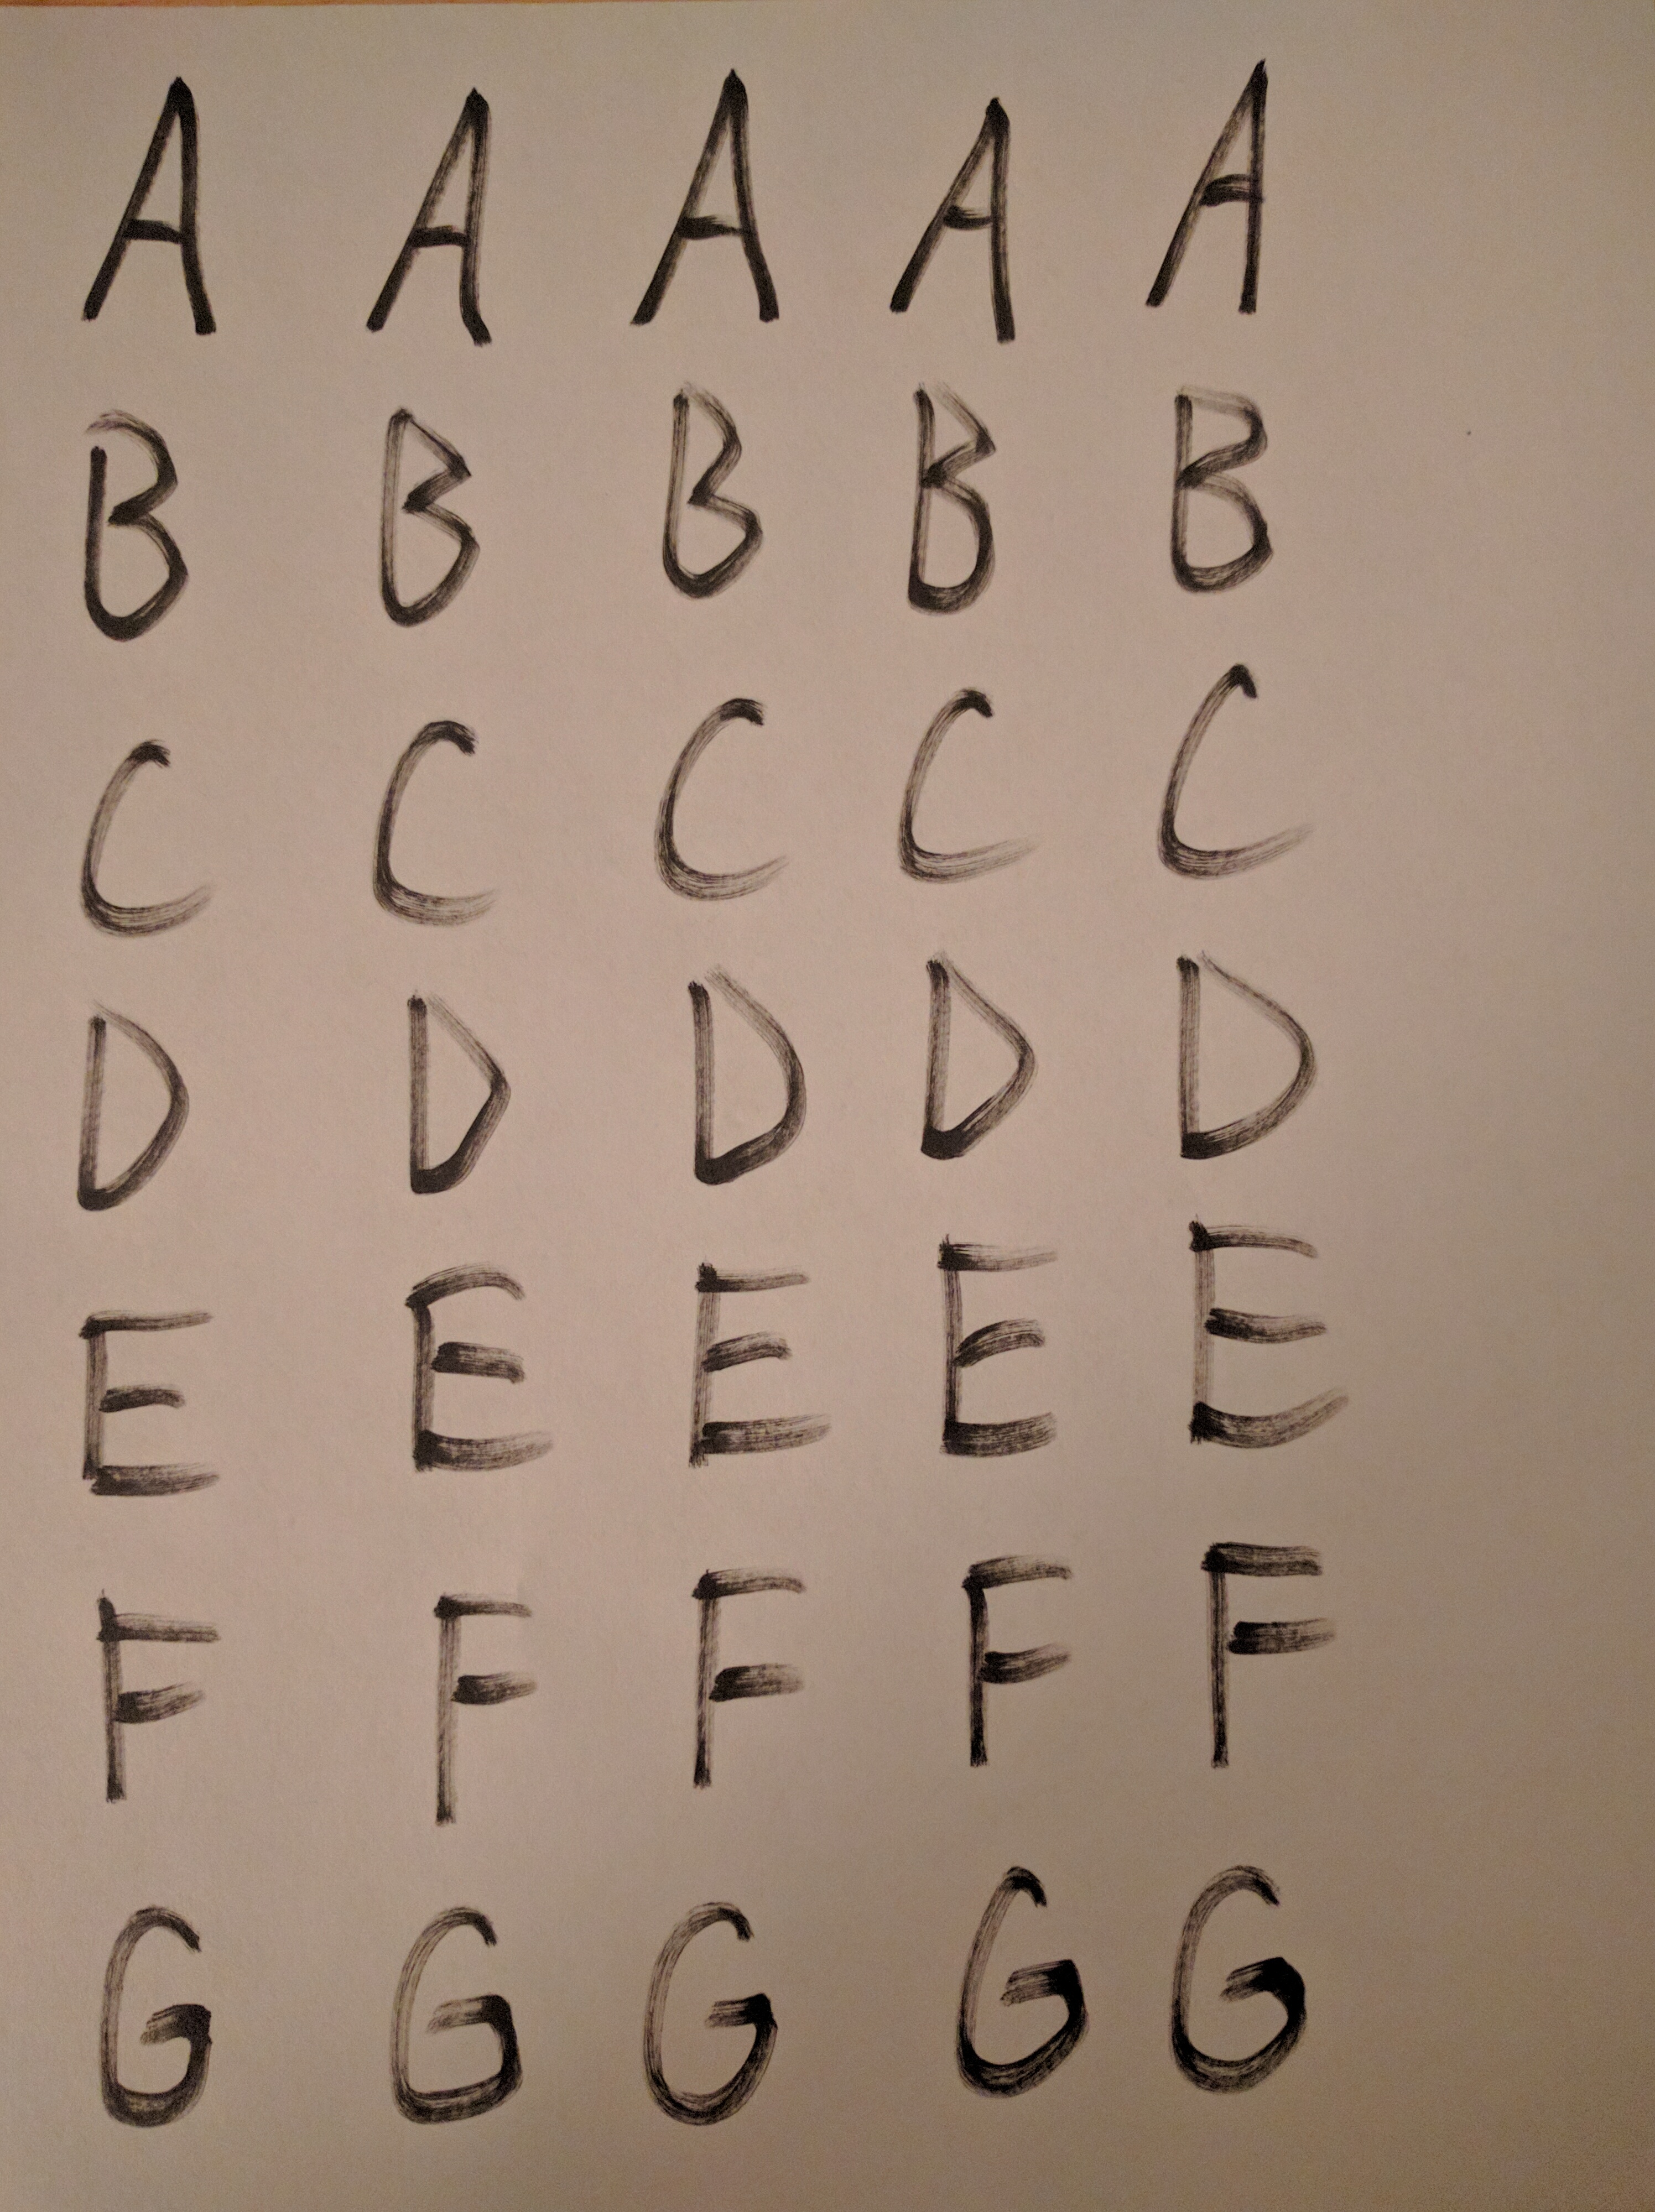 A A A A A
B B B B B
C C C C C
D D D D D
E E E E E
F F F F F
G G G G G